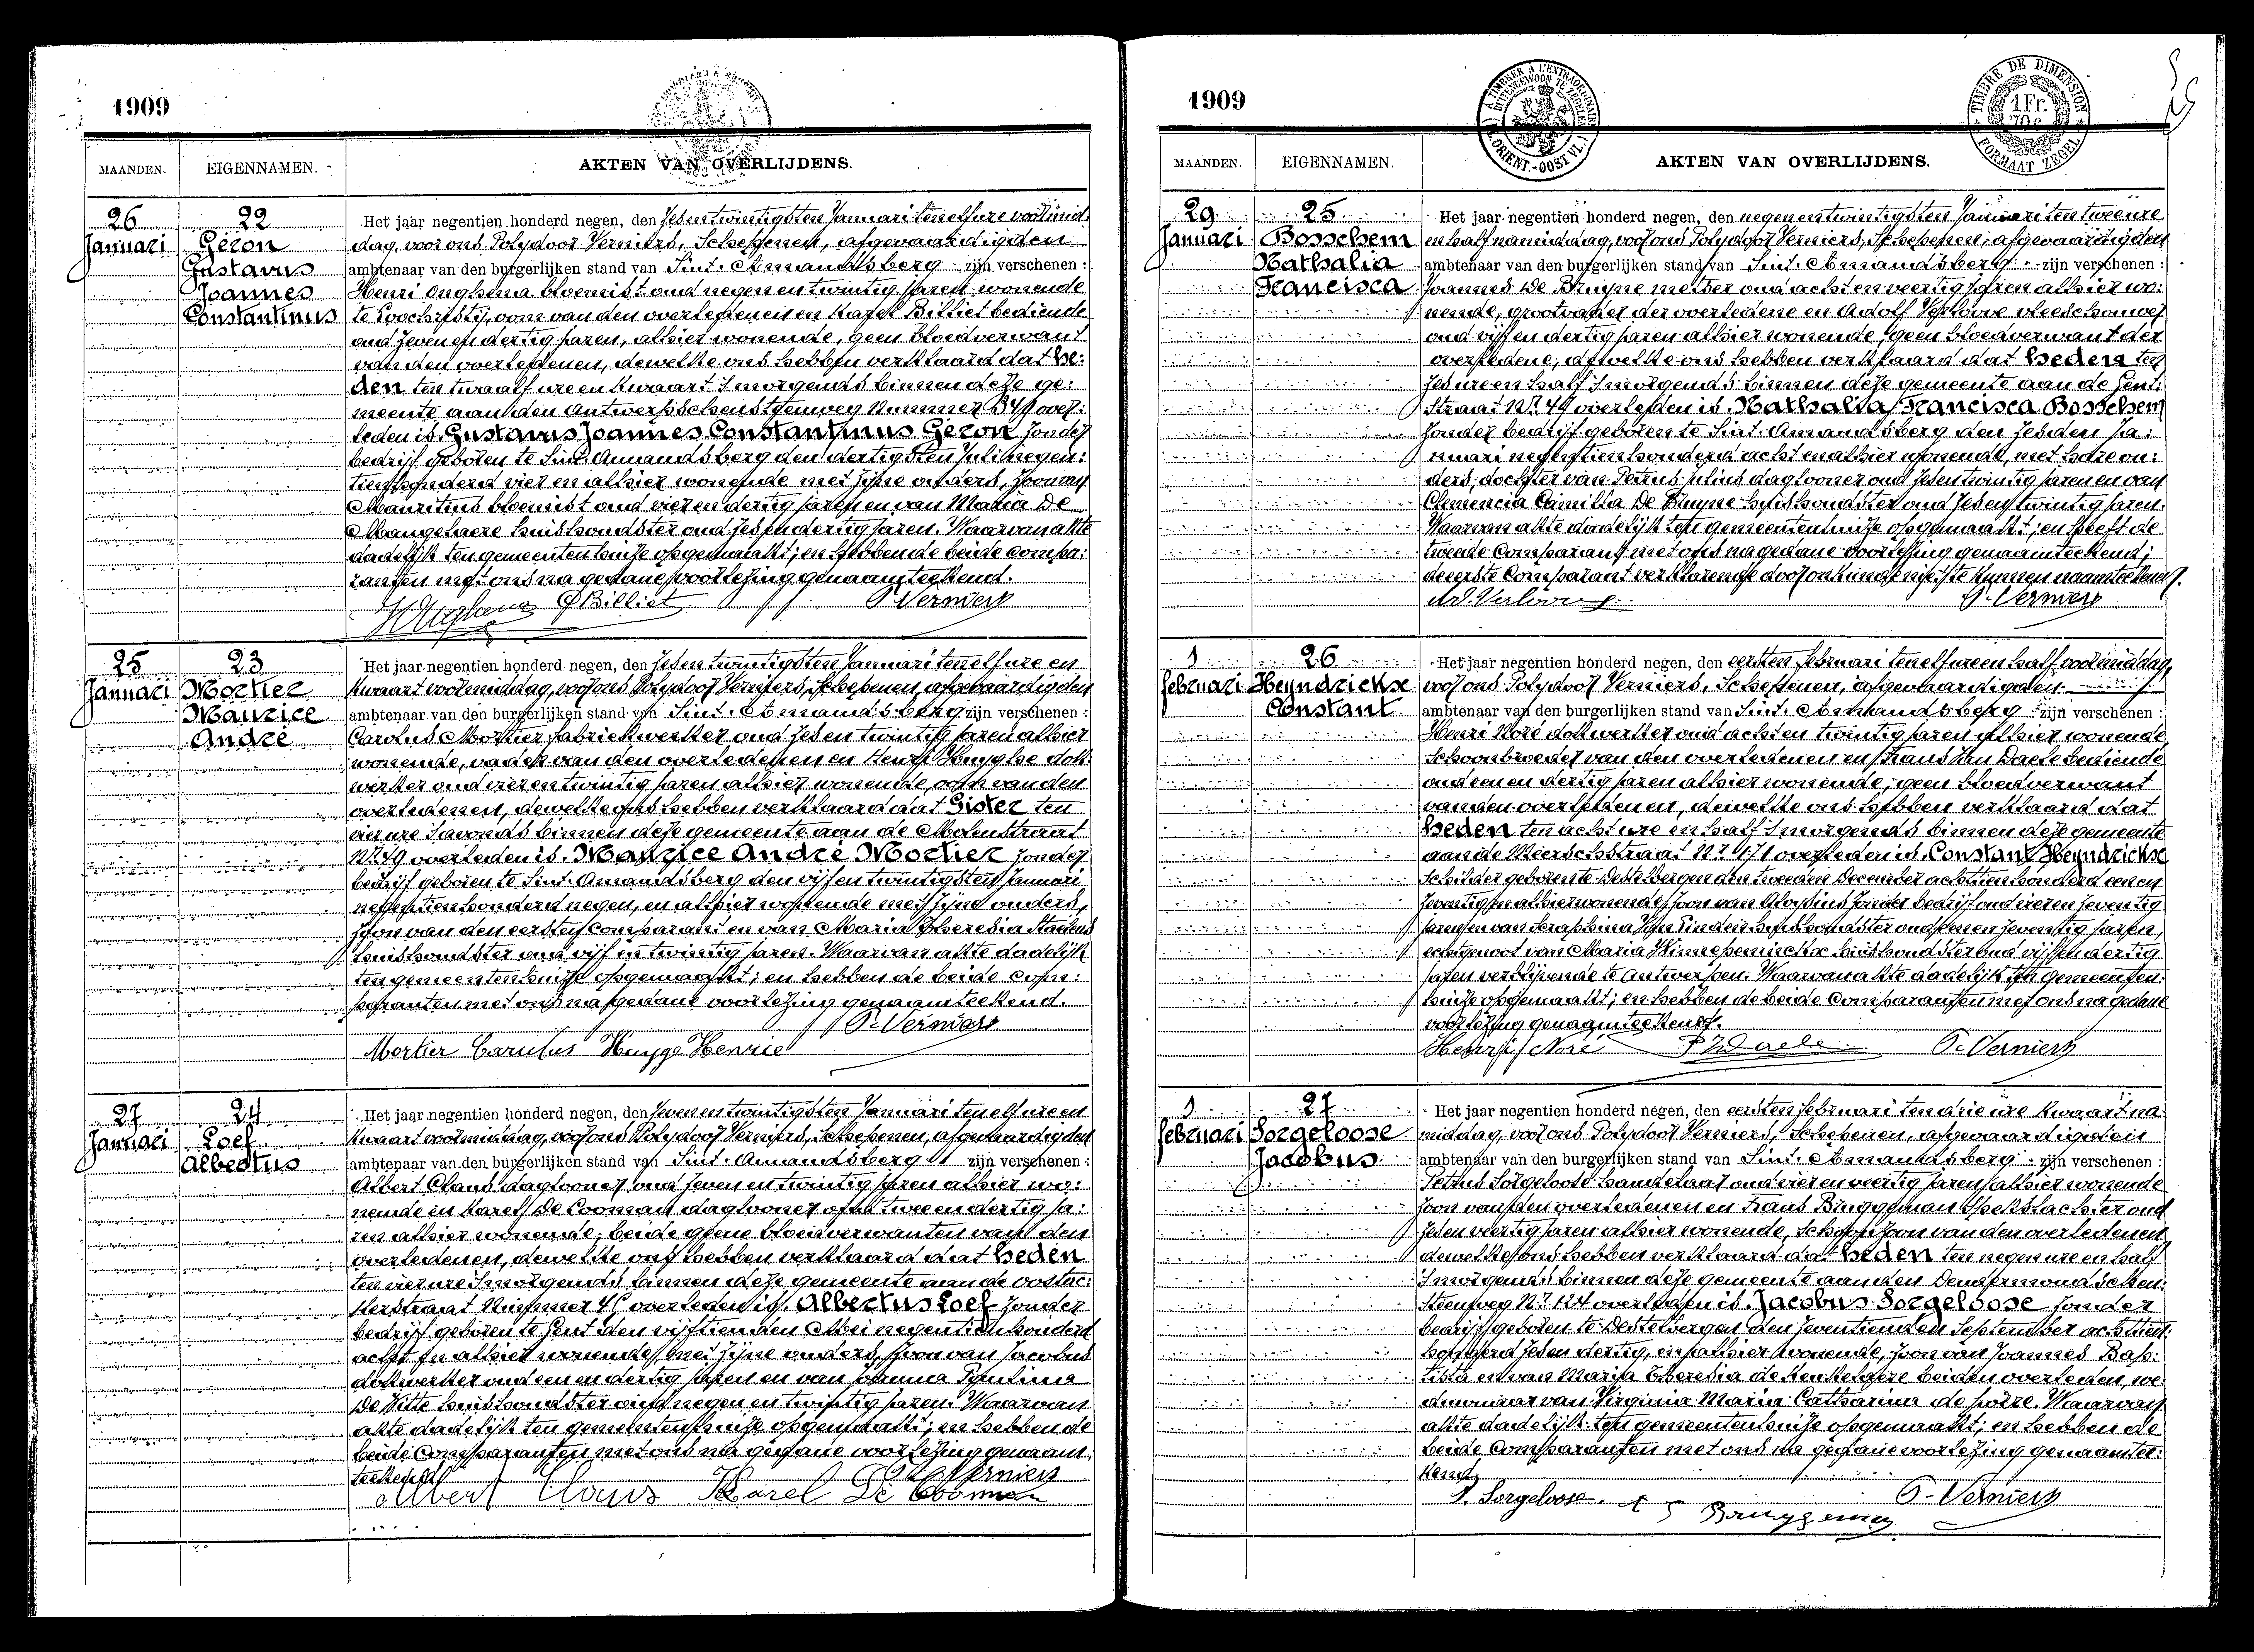 1909
MAANDEN. EIGENNAMEN. AKTEN VAN OVERLIJDENS.
26 Januari
22
Geron
Gustavus
Joannes
Constantinus
Het jaar negentien honderd negen, den zesentwintigsten Januari ten elf ure voormid:
dag, voor ons Polydoor Verniers, Schepenen, afgevaardigden
ambtenaar van den burgerlijken stand van Sint. Amandsberg zijn verschenen :
Henri Onghena bloemist oud negen en twintig jaren wonende
te Loochristij, oom van den overledenen en Karel Billiet bediende
oud zeven en dertig jaren, alhier wonende, geen bloedverwant
van den overledenen, dewelke ons hebben verklaard dat he:
den ten twaalf ure en kwaart s'morgends binnen deze ge:
meente aan den Antwerpschensteenweg Nummer over:
leden is. Gustavus Joannes Constantinus Geron zonder
bedrijf geboren te Sint. Amandsberg den dertigsten Juli negen:
tien honderd vier en alhier wonende met zijne ouders, zoon van
Mauritius bloemist oud vier en dertig jaren en van Maria De
Maangelaere huishoudster oud zes en dertig jaren. Waarvan akte
dadelijk ten gemeentenhuize opgemaakt; en hebben de beide compa:
ranten met ons na gedane voorlezing genaamteekend.
Billiet P. Verniers
25 Januari
23
Mortier
Maurice
André
Het jaar negentien honderd negen, den zesen twintigsten Januari ten elf ure en
kwaart voormiddag, voor ons Polydoor Verniers, Schepenen, afgevaardigden
ambtenaar van den burgerlijken stand van Sint. Amandsberg zijn verschenen :
Carolus Mortier fabriekwerker oud zes en twintig jaren alhier
wonende, vader van den overledenen en Henri Huyghe dok:
werker oud vier en twintig jaren alhier wonende, oom van den
overledenen, dewelke ons hebben verklaard dat Gister ten
vier ure s'avonds binnen deze gemeente aan de Molenstraat
Nr. 49 overleden is. Maurice André Mortier zonder
bedrijf geboren te Sint. Amandsberg den vijfen twintigsten Januari
negentien honderd negen, en alhier wonende met zijne ouders,
zoon van den eersten comparant en van Maria Theresia Staelens
huishoudster oud vijf en twintig jaren. Waarvan akte dadelijk
ten gemeentenhuize opgemaakt; en hebben de beide com:
paranten met ons na gedane voorlezing genaamteekend.
P. Verniers
Mortier Carolus Huyge Henrie
27 Januari
24
Loef
Albertus
Het jaar negentien honderd negen, den zevenentwintigsten Januari ten elf ure en
kwaart voormiddag, voor ons Polydoor Verniers, Schepenen, afgevaardigden
ambtenaar van den burgerlijken stand van Sint. Amandsberg zijn verschenen :
Albert Claus daglooner oud zeven en twintig jaren alhier wo:
nende en Karel De Cooman daglooner oud twee en dertig ja:
ren alhier wonende, beide geene bloedverwanten van den
overledenen, dewelke ons hebben verklaard dat heden
ten vier ure s'morgends binnen deze gemeente aan de Oostac:
kerstraat Nummer overleden is. Albertus Loef zonder
bedrijf geboren te Gent den vijftienden Mei negentien honderd
acht en alhier wonende, met zijne ouders, zoon van Jacobus
dokwerker oud een en dertig jaren en van Joanna Paulina
De Witte huishoudster oud negen en twintig jaren. Waarvan
akte dadelijk ten gemeentenhuize opgemaakt; en hebben de
beide Comparanten met ons na gedane voorlezing genaam:
teekend. P. Verniers
Albert Claus Karel De Cooman
1909
A TIMBRER A L'EXTRAORDINAIRE
FL. ORIENT.-OOST VL.
TIMBRE DE DIMENSION
1 Fr.
FORMAAT ZEGEL
MAANDEN. EIGENNAMEN. AKTEN VAN OVERLIJDENS.
29 Januari
25
Bosschem
Nathalia
Francisca
Het jaar negentien honderd negen, den negenentwintigsten Januari ten twee ure
en half namiddag, voor ons Polydoor Verniers, Schepenen, afgevaardigden
ambtenaar van den burgerlijken stand van Sint. Amandsberg zijn verschenen :
Joannes De Bruyne metser oud acht en veertig jaren alhier wo:
nende, grootvader der overledene en Adolf Verlove vleeschouwer
oud vijf en dertig jaren alhier wonende, geen bloedverwant der
overledene, dewelke ons hebben verklaard dat heden ten
zes ure en half s'morgends binnen deze gemeente aan de Gent:
straat Nr. 49 overleden is. Nathalia Francisca Bosschem
zonder bedrijf geboren te Sint. Amandsberg den zesden Ja:
nuari negentien honderd acht en alhier wonende, met hare ou:
ders, dochter van Petrus Julius daglooner oud zesen twintig jaren en van
Clemencia Camilla De Bruyne huishoudster oud zesen twintig jaren.
Waarvan akte dadelijk ten gemeentenhuize opgemaakt; en heeft de
tweede Comparant met ons na gedane voorlezing genaamteekend;
de eerste Comparant verklarende door onkunde niet te kunnen naamteekenen.
Ad. Verlove P. Verniers
1 Februari
26
Heyndrickse
Constant
Het jaar negentien honderd negen, den eersten Februari ten elf ure en half voormiddag,
voor ons Polydoor Verniers, Schepenen, afgevaardigden
ambtenaar van den burgerlijken stand van Sint. Amandsberg zijn verschenen :
Henri Noré dokwerker oud acht en twintig jaren alhier wonende
schoonbroeder van den overledenen en Frans Van Daele bediende
oud een en dertig jaren alhier wonende, geen bloedverwant
van den overledenen, dewelke ons hebben verklaard dat
heden ten acht ure en half s'morgends binnen deze gemeente
aan de Meerschstraat Nr. 171 overleden is. Constant Heyndrickse
schilder geboren te Destelbergen den tweeden December achttien honderd een en
zeventig en alhier wonende, zoon van Aloysius zonder bedrijf oud vier en zeventig
jaren en van Seraphina Van Linden huishoudster oud een en zeventig jaren,
echtgenoot van Maria huishoudster oud vijf en dertig
jaren verblijvende te Antwerpen. Waarvan akte dadelijk ten gemeenten:
huize opgemaakt; en hebben de beide Comparanten met ons na gedane
voorlezing genaamteekend.
Henri Noré P. Verniers
1 Februari
27
Sorgeloose
Jacobus
Het jaar negentien honderd negen, den eersten Februari ten drie ure kwaart na:
middag, voor ons Polydoor Verniers, Schepenen, afgevaardigden
ambtenaar van den burgerlijken stand van Sint. Amandsberg zijn verschenen :
Petrus Sorgeloose handelaar oud vier en veertig jaren alhier wonende
zoon van den overledenen en Frans Bruggeman spekslachter oud
zesen veertig jaren alhier wonende, schoonzoon van den overledenen,
dewelke ons hebben verklaard dat heden ten negen ure en half
s'morgends binnen deze gemeente aan den Dendermondschen:
steenweg Nr. 124 overleden is. Jacobus Sorgeloose zonder
bedrijf geboren te Destelbergen den zeventienden September achttien:
honderd zes en dertig, en alhier wonende, zoon van Joannes Bap:
tista en van Maria Theresia beiden overleden, we:
duwnaar van Virginia Maria Catharina Waarvan
akte dadelijk ten gemeentenhuize opgemaakt; en hebben de
beide Comparanten met ons na gedane voorlezing genaamtee:
kend.
P. Sorgeloose. Bruggeman P. Verniers